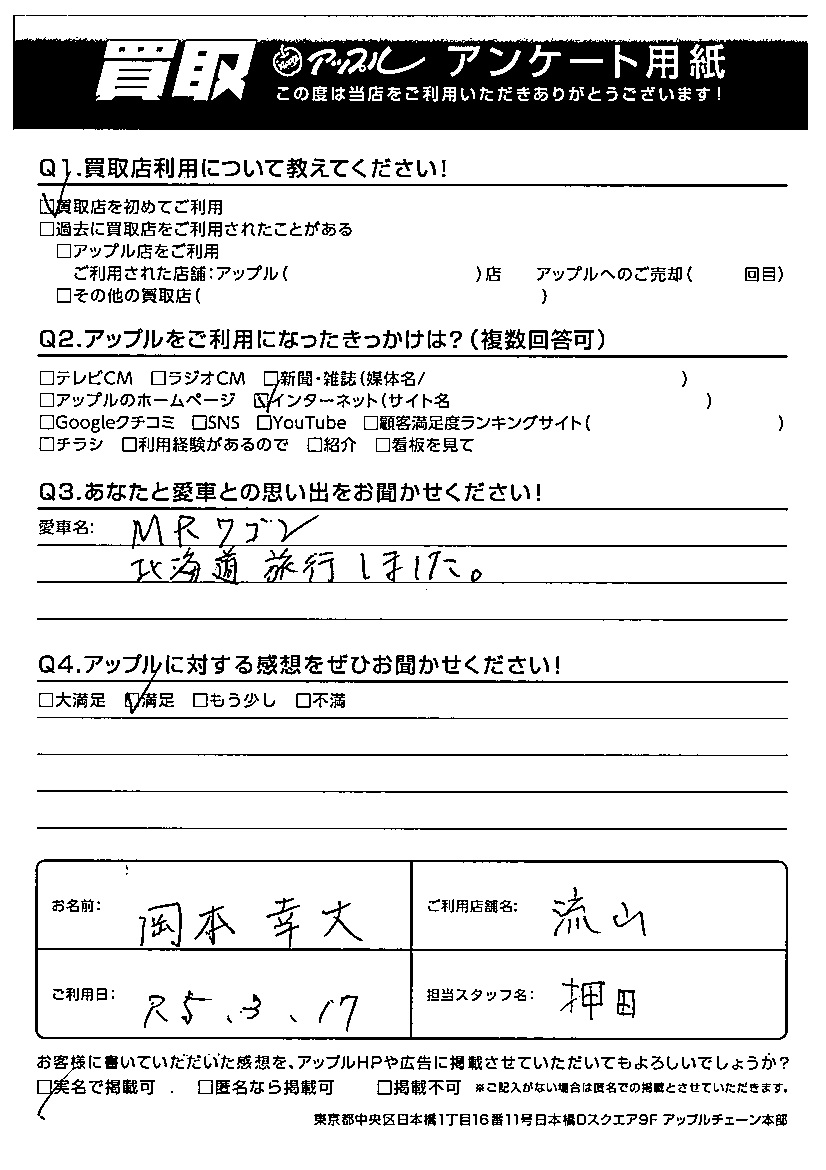 買取 アップル アンケート用紙
この度は当店をご利用いただきありがとうございます!
Q1.買取店利用について教えてください!
☑買取店を初めてご利用
□過去に買取店をご利用されたことがある
□アップル店をご利用
ご利用された店舗:アップル( )店 アップルへのご売却( 回目)
□その他の買取店( )
Q2.アップルをご利用になったきっかけは?(複数回答可)
□テレビCM □ラジオCM □新聞・雑誌(媒体名/ )
□アップルのホームページ ☑インターネット(サイト名 )
□Googleクチコミ □SNS □YouTube □顧客満足度ランキングサイト( )
□チラシ □利用経験があるので □紹介 □看板を見て
Q3.あなたと愛車との思い出をお聞かせください!
愛車名: MRワゴン
北海道旅行しました。
Q4.アップルに対する感想をぜひお聞かせください!
□大満足 ☑満足 □もう少し □不満
お名前: 岡本 幸丈 ご利用店舗名: 流山
ご利用日: R5.3.17 担当スタッフ名: 押田
お客様に書いていただいた感想を、アップルHPや広告に掲載させていただいてもよろしいでしょうか?
☑実名で掲載可 . □匿名なら掲載可 □掲載不可 ※ご記入がない場合は匿名での掲載とさせていただきます。
東京都中央区日本橋1丁目16番11号日本橋Dスクエア9F アップルチェーン本部